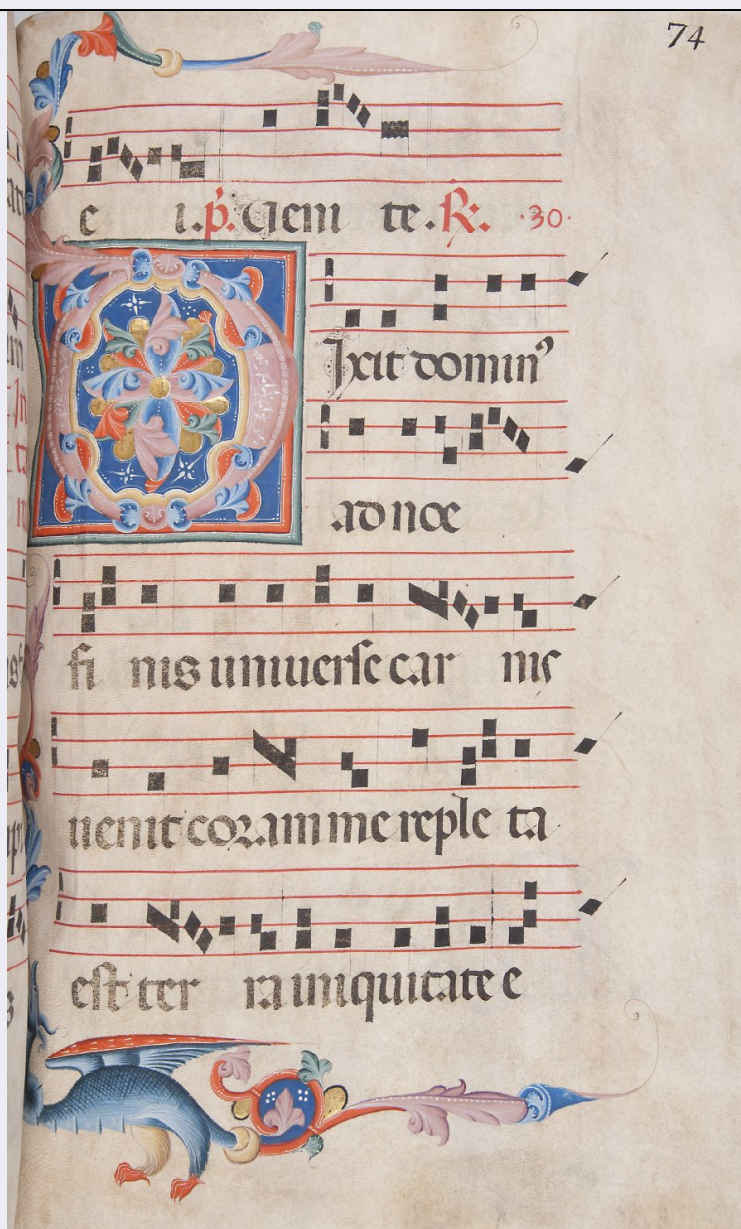 74
e i. p̄. Ueni te. R̄. ·30·
Dixit dominꝰ
ad noe
fi nis uniuerse car nis
uenit coram me reple ta
est ter ra iniquitate e